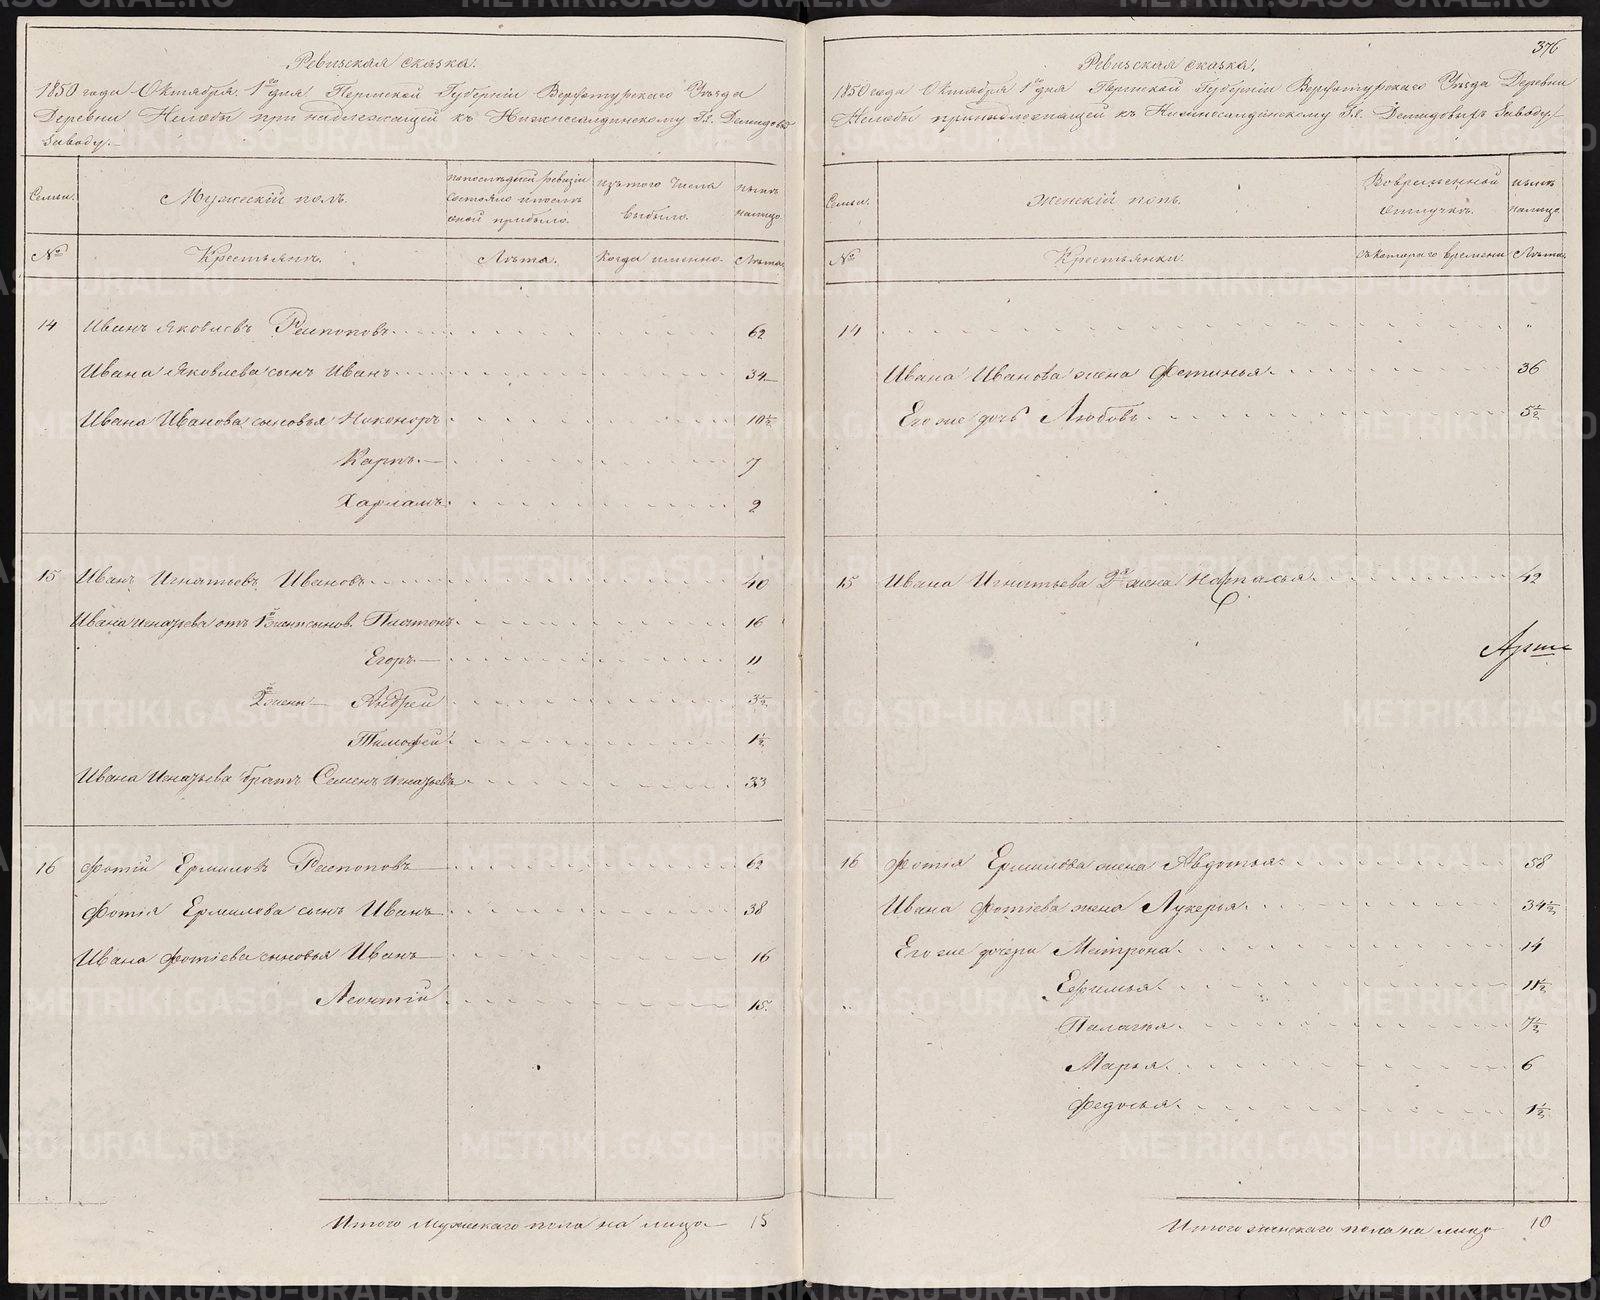 Ревизская сказка.
1850 года Октября 1го дня Пермской Губернiи Верхотурскаго Уѣзда
Деревни Нелобы принадлежащей къ Нижнесалдинскому Гг. Демидовыхъ
Заводу.
Семьи.
Мужескiй полъ.
по последней ревизiи
состояло и послѣ
оной прибыло.
изъ того числа
выбыло.
нынѣ
на лицо.
№
Крестьянъ.
Лѣта.
Когда именно.
Лѣта.
14 Иванъ Яковлевъ Распоповъ 62
Ивана Яковлева сынъ Иванъ 34
Ивана Иванова сыновья Никоноръ 10½
Карпъ 7
Харламъ 2
15 Иванъ Игнатьевъ Ивановъ 40
Ивана Игнатьева отъ 1й жены сынов. Платонъ 16
Егоръ 11
2й жены Андрей 3½
Тимофей 1½
Ивана Игнатьева братъ Семенъ Игнатьевъ 33
16 Фотiй Ермиловъ Распоповъ 62
Фотiя Ермилова сынъ Иванъ 38
Ивана Фотiева сыновья Иванъ 16
Леонтiй 15
Итого мужескаго пола на лицо 15
376
Ревизская сказка.
1850 года Октября 1го дня Пермской Губернiи Верхотурскаго Уѣзда Деревни
Нелобы принадлежащей къ Нижнесалдинскому Гг. Демидовыхъ Заводу
Семьи.
Женскiй полъ.
Во временной
отлучкѣ.
нынѣ
на лицо.
№
Крестьянки.
Съ котораго времени
Лѣта.
14
Ивана Иванова жена Фетинья 36
Его же дочь Любовь 5½
15 Ивана Игнатьева 2я жена Настасья 42
16 Фотiя Ермилова жена Авдотья 58
Ивана Фотiева жена Лукерья 34½
Его же дочери Матрона 14
Ефимья 11½
Палагья 7½
Марья 6
Федосья 1½
Итого женскаго пола на лицо 10
METRIKI.GASO-URAL.RU